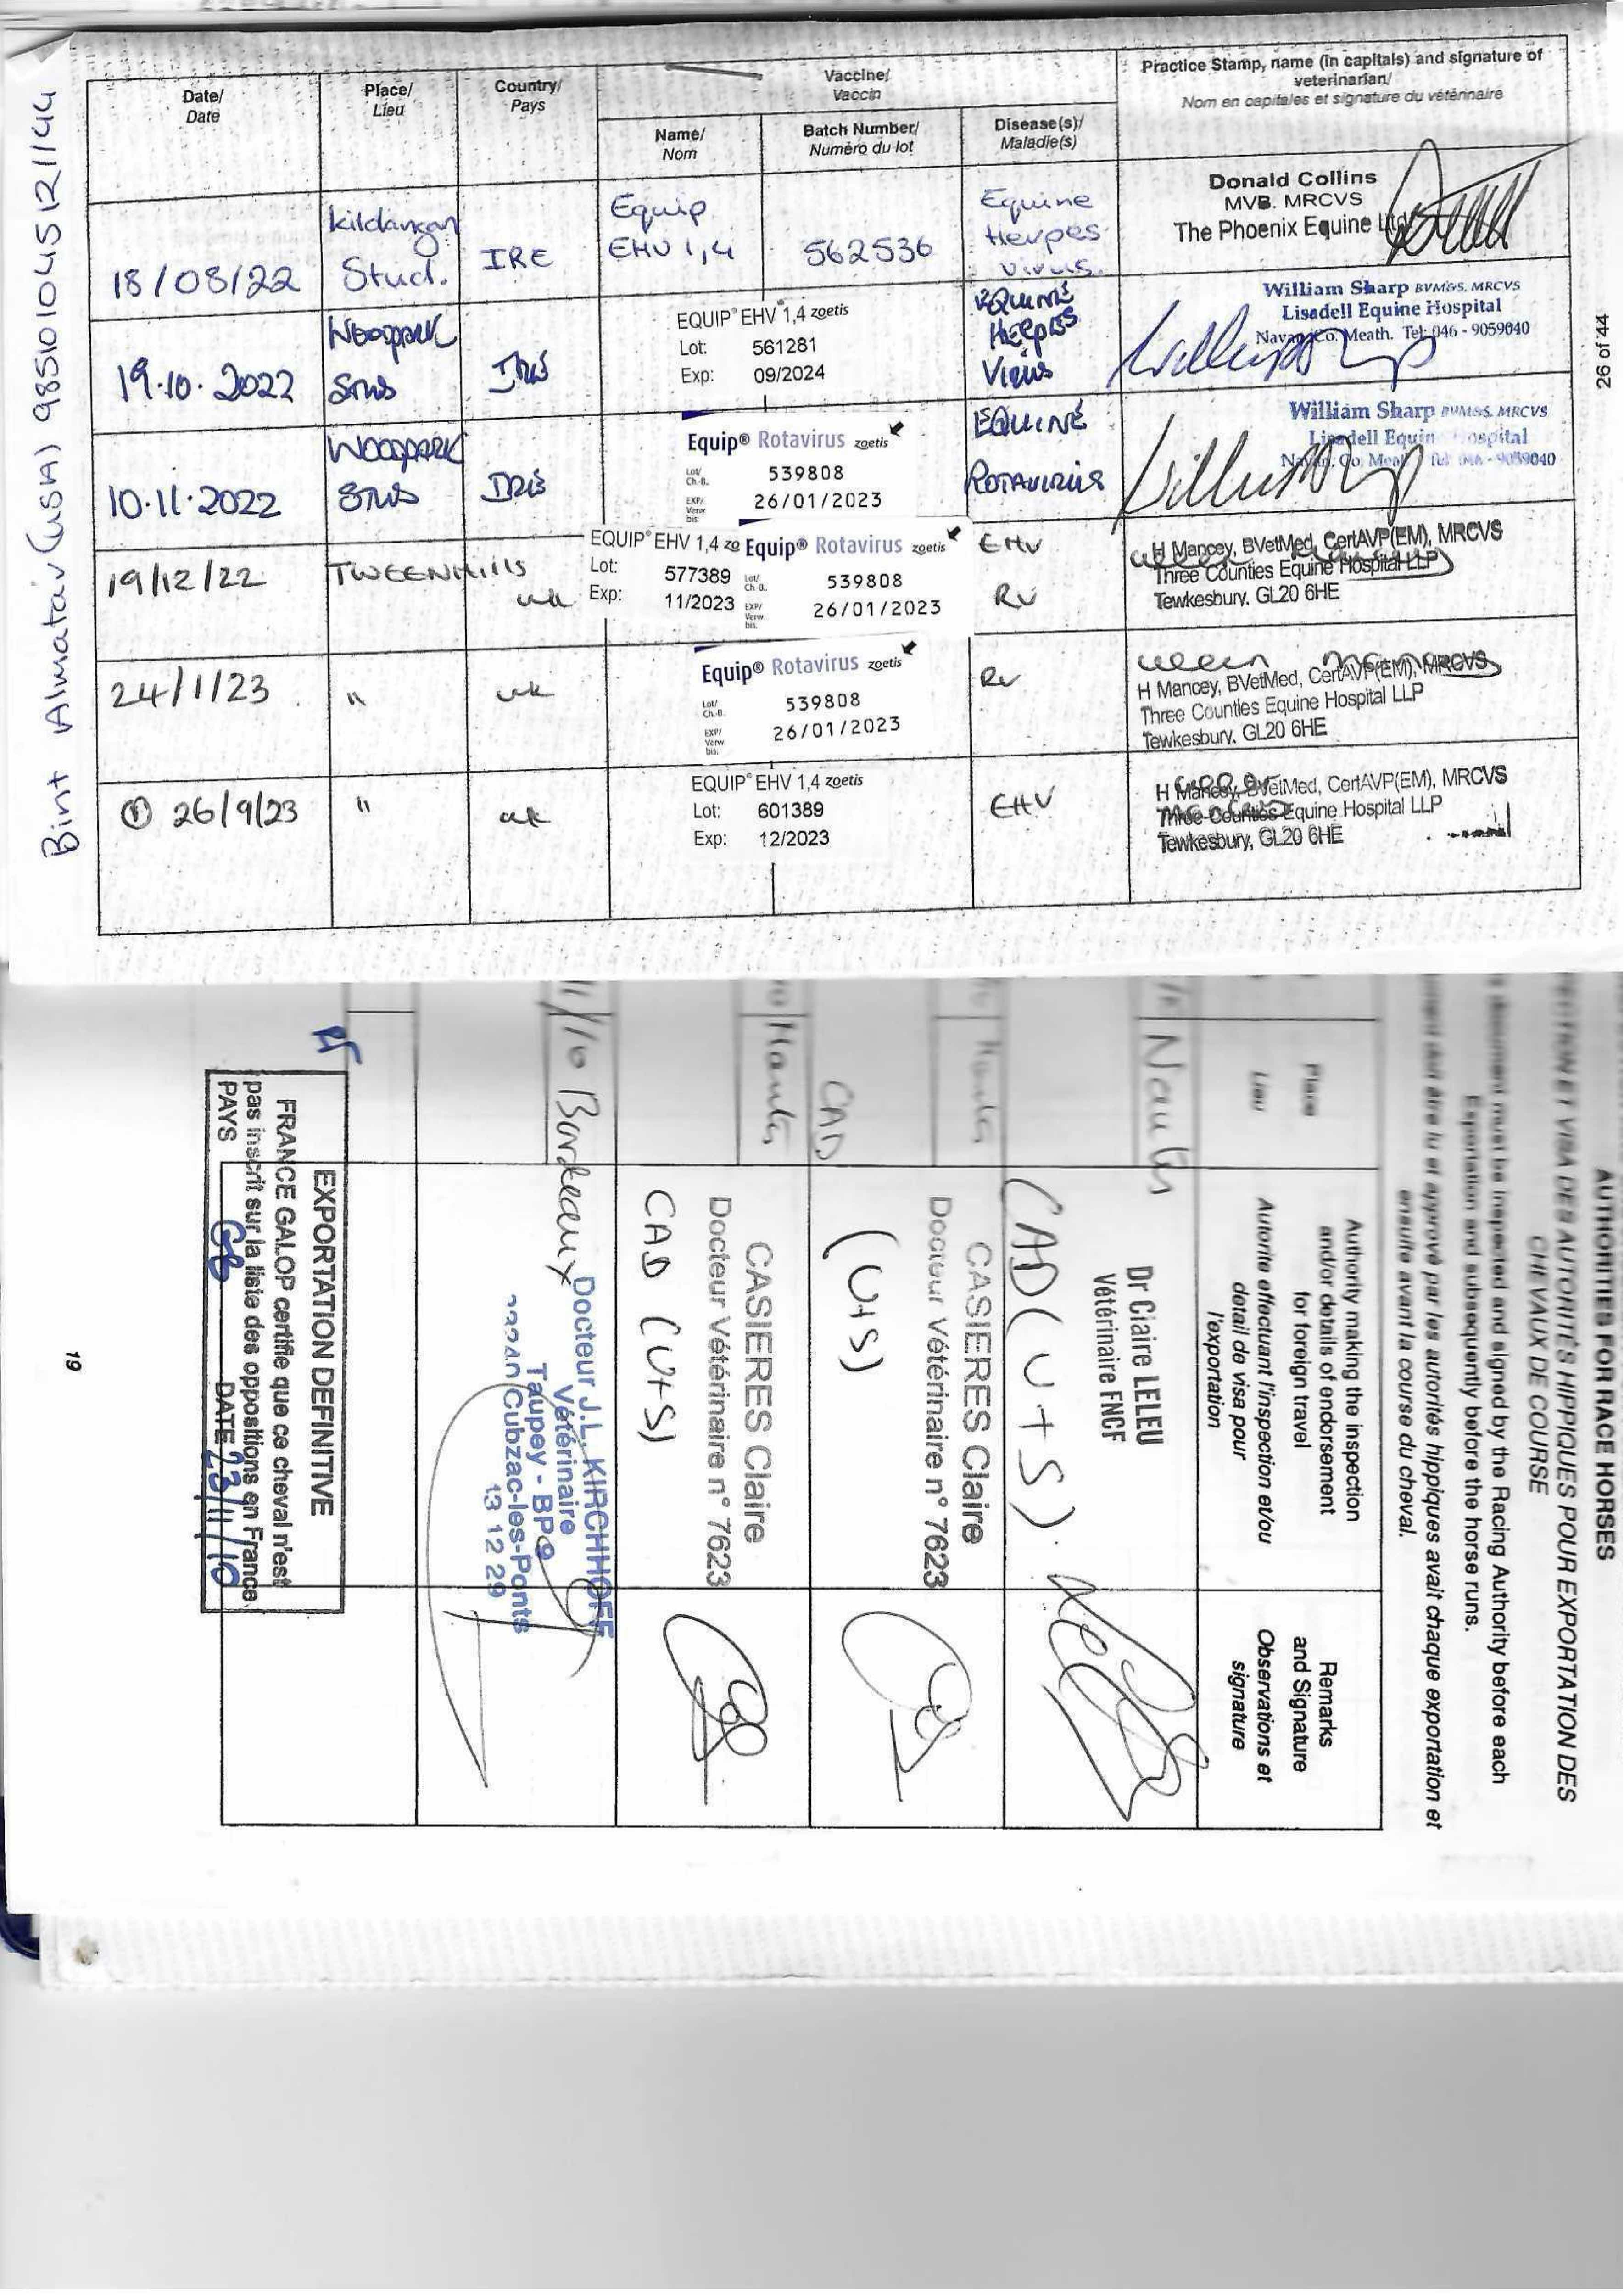 Bint Almatair (USA) 985101045121144
Date/
Date
Place/
Lieu
Country/
Pays
Vaccine/
Vaccin
Name/
Nom
Batch Number/
Numéro du lot
Disease(s)/
Maladie(s)
Practice Stamp, name (in capitals) and signature of
veterinarian/
Nom en capitales et signature du vétérinaire
18/08/22
Kildangan
Stud.
IRE
Equip
EHV 1,4
562536
Equine
Herpes
Virus.
Donald Collins
MVB. MRCVS
The Phoenix Equine Ltd
19.10.2022
WOODPARK
STUD
EQUIP® EHV 1,4 zoetis
Lot: 561281
Exp: 09/2024
EQUINE
HERPES
VIRUS
William Sharp BVM&S. MRCVS
Lisadell Equine Hospital
Navan, Co. Meath. Tel: 046 - 9059040
10.11.2022
WOODPARK
STUD
Equip® Rotavirus zoetis
Lot/
Ch.-B. 539808
EXP/
Verw
bis: 26/01/2023
EQUINE
ROTAVIRUS
William Sharp BVM&S. MRCVS
Lisadell Equine Hospital
Navan, Co. Meath. Tel: 046 - 9059040
19/12/22
TWEENHILLS
UK
EQUIP® EHV 1,4 zo
Lot: 577389
Exp: 11/2023
Equip® Rotavirus zoetis
Lot/
Ch.-B. 539808
EXP/
Verw
bis. 26/01/2023
EHV
RV
H Mancey, BVetMed, CertAVP(EM), MRCVS
Three Counties Equine Hospital LLP
Tewkesbury. GL20 6HE
24/1/23
"
UK
Equip® Rotavirus zoetis
Lot/
Ch.-B. 539808
EXP/
Verw
bis: 26/01/2023
RV
H Mancey, BVetMed, CertAVP(EM), MRCVS
Three Counties Equine Hospital LLP
Tewkesbury. GL20 6HE
26/9/23
"
UK
EQUIP® EHV 1,4 zoetis
Lot: 601389
Exp: 12/2023
EHV
H Mancey, BVetMed, CertAVP(EM), MRCVS
Three Counties Equine Hospital LLP
Tewkesbury, GL20 6HE
26 of 44
AUTHORITIES FOR RACE HORSES
ET VISA DES AUTORITÉS HIPPIQUES POUR EXPORTATION DES
CHEVAUX DE COURSE
document must be inspected and signed by the Racing Authority before each
Exportation and subsequently before the horse runs.
doit être lu et apprové par les autorités hippiques avait chaque exportation et
ensuite avant la course du cheval.
Place
Lieu
Authority making the inspection
and/or details of endorsement
for foreign travel
Autorite effectuant l'inspection et/ou
detail de visa pour
l'exportation
Remarks
and Signature
Observations et
signature
Dr Claire LELEU
Vétérinaire FNCF
CAD (U+S).
CASIERES Claire
Docteur Vétérinaire n° 7623
CAD
(U+S)
CASIERES Claire
Docteur Vétérinaire n° 7623
CAD (U+S)
Bordeaux
Docteur J.L. KIRCHHOFF
Vétérinaire
Taupey - BP 9
Cubzac-les-Ponts
13 12 29
EXPORTATION DEFINITIVE
FRANCE GALOP certifie que ce cheval n'est
pas inscrit sur la liste des oppositions en France
PAYS GB DATE 23/11/10
19